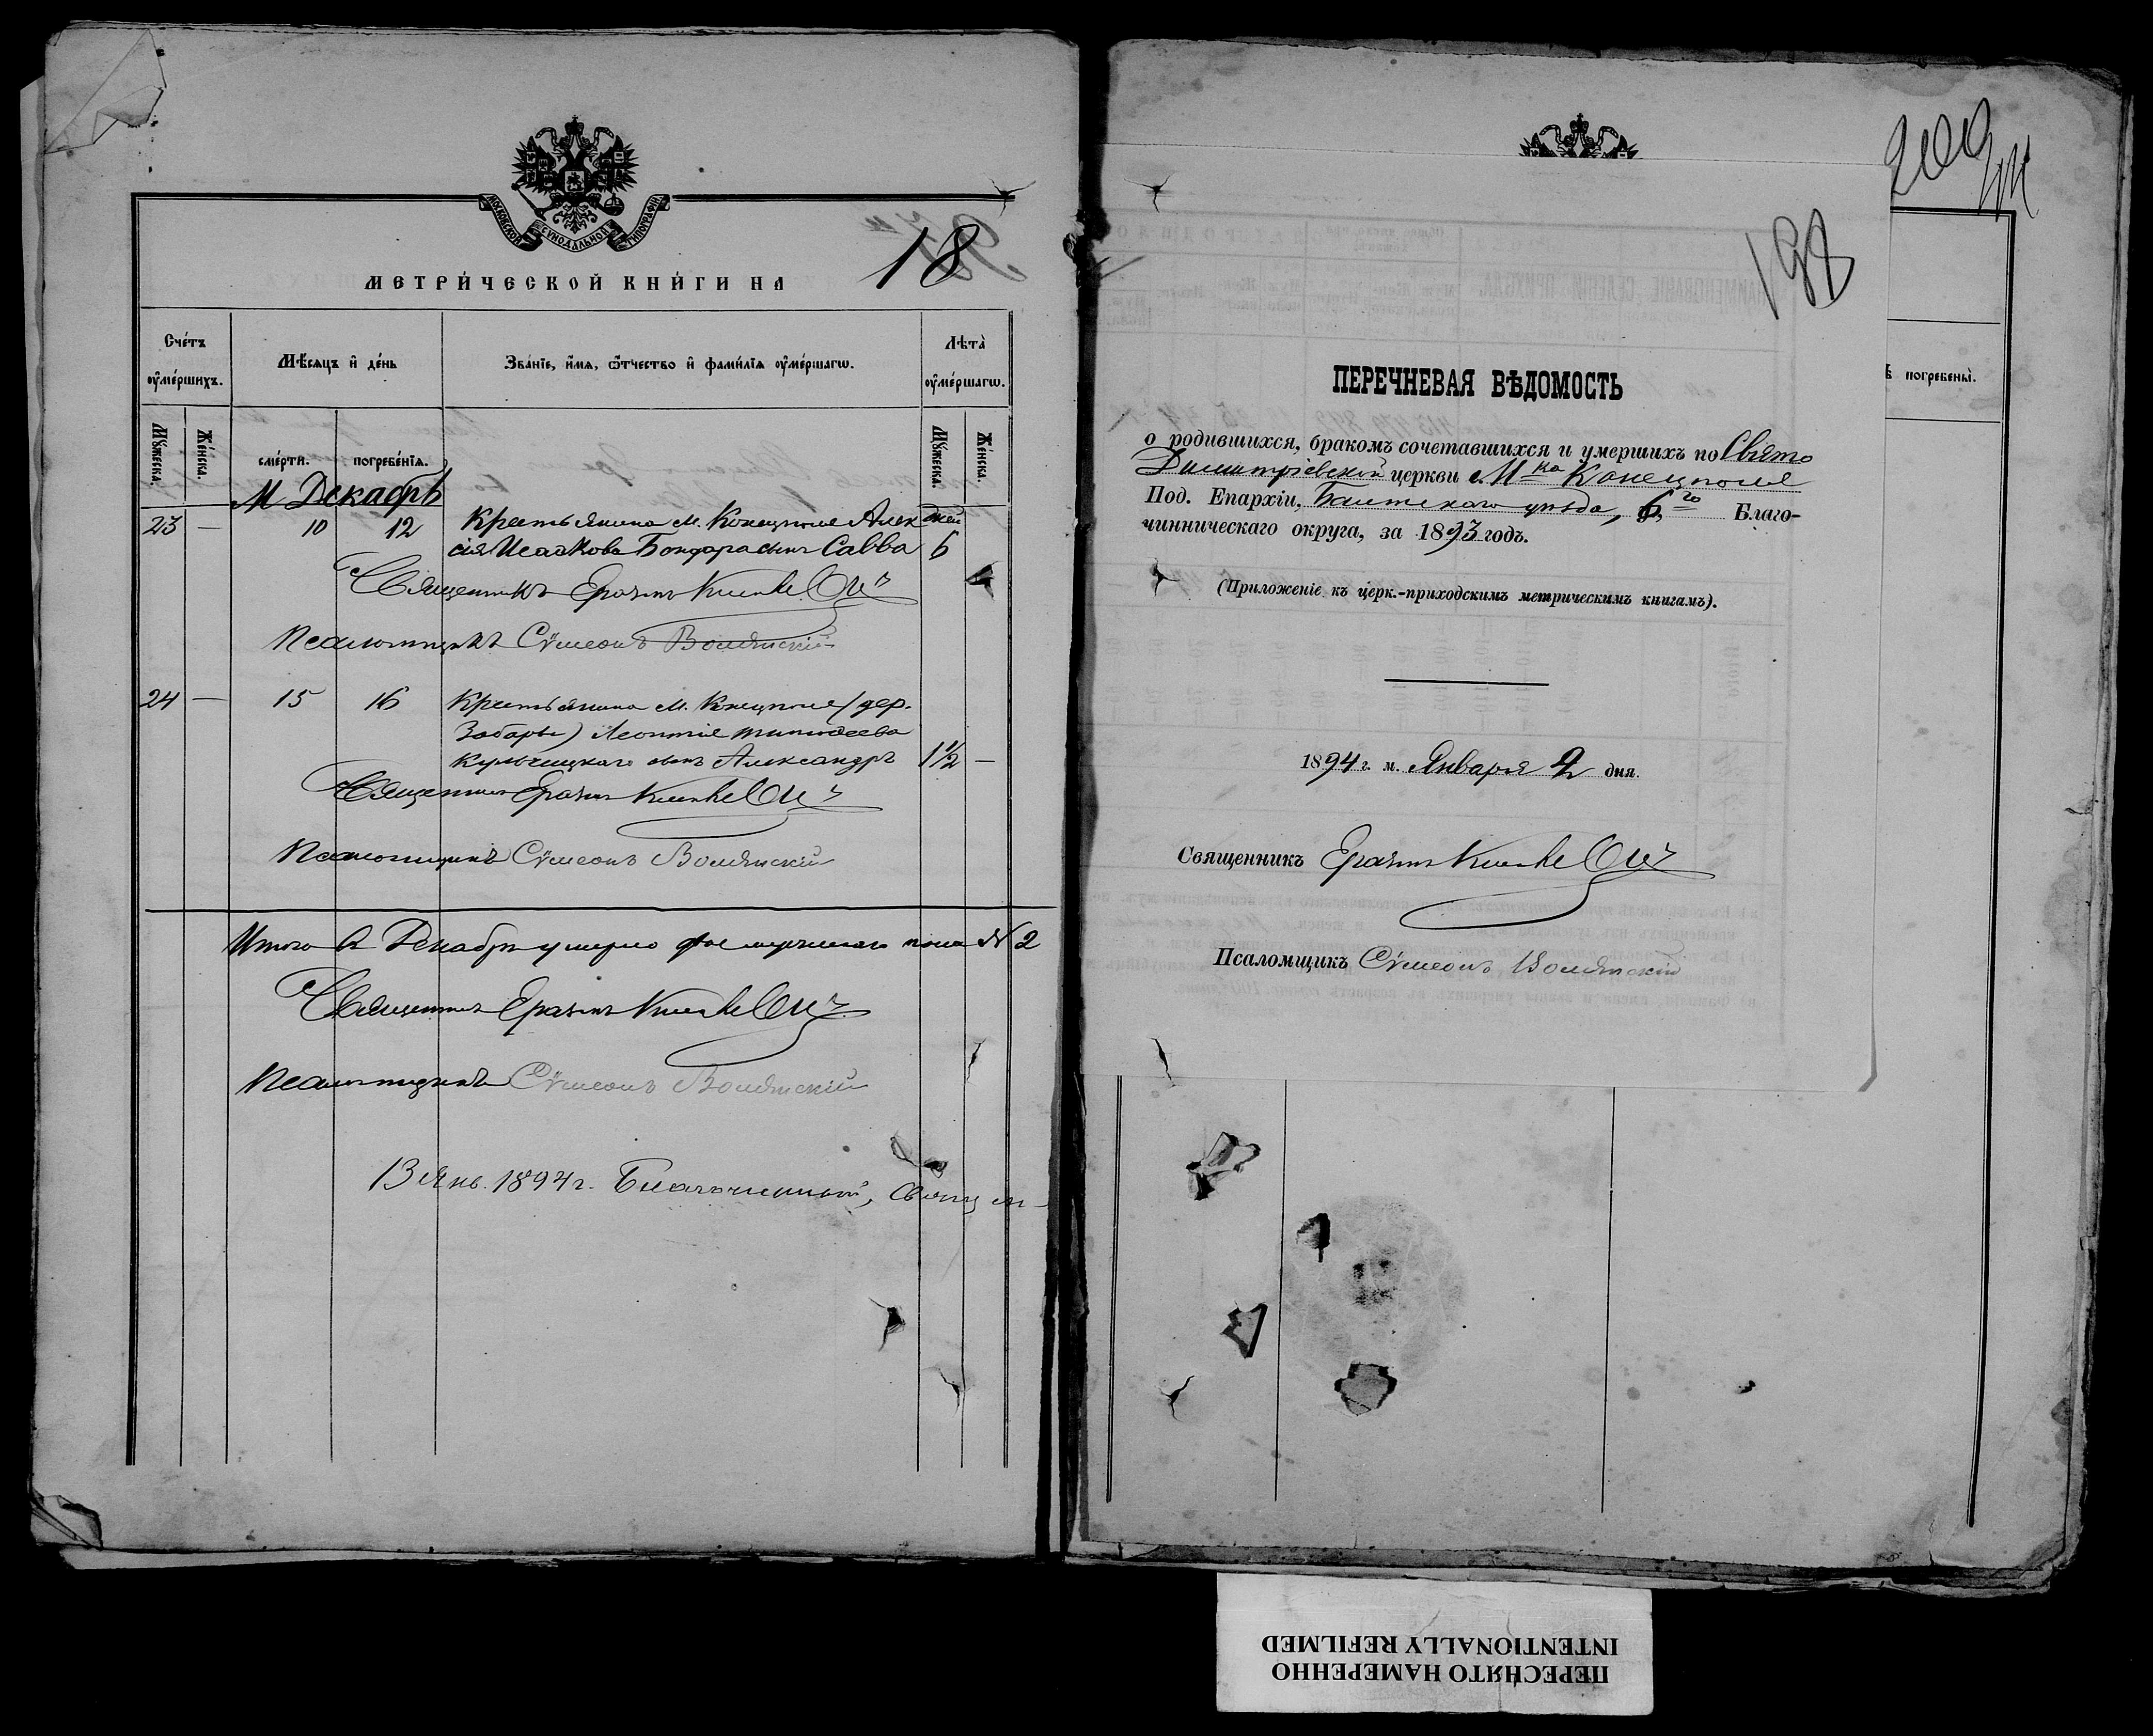 МОСКОВСКОЙ СУНОДАЛЬНОЙ ТИПОГРАФІИ
МЕТРИ́ЧЕСКОЙ КНИ́ГИ НА 18
Сче́тъ ᲂу҆ме́ршихъ.
Мѣ́сяцъ и҆ де́нь
Зва́нїе, и҆́мѧ, ѻ҆́тчество и҆ фами́лїѧ ᲂу҆ме́ршагѡ.
Лѣта̀ ᲂу҆ме́ршагѡ.
Мꙋ́жеска.
Же́нска.
сме́рти.
погребе́нїѧ.
Мꙋ́жеска.
Же́нска.
М Декабрь
23 — 10 12 Крестьянина м. Конецполя Алек дней
сія Исаакова Бондара сынъ Савва 6
Священникъ Еразмъ
Псаломщикъ Сѵмеонъ
24 — 15 16 Крестьянина м. Конецполя (дер.
Забары) Леонтія Тимоѳеева
Кульчицкаго сынъ Александръ 1½ —
Священникъ Еразмъ
Псаломщикъ Сѵмеонъ
Итого въ Декабрѣ умерло двое мужескаго пола № 2
Священникъ Еразмъ
Псаломщикъ Сѵмеонъ
13 Янв. 1894 г. Благочинный, Священ
200
198
ѣ погребены̀.
ПЕРЕЧНЕВАЯ ВѢДОМОСТЬ
о родившихся, бракомъ сочетавшихся и умершихъ по Свято
Димитріевской церкви с. М-ка Конецполя
Под. Епархіи, Балтскаго уѣзда, 6го Благо-
чинническаго округа, за 1893 годъ.
(Приложеніе къ церк.-приходскимъ метрическимъ книгамъ).
1894 г. м. Января 2 дня.
Священникъ Еразмъ
Псаломщикъ Сѵмеонъ
ПЕРЕСНЯТО НАМЕРЕННО
INTENTIONALLY REFILMED